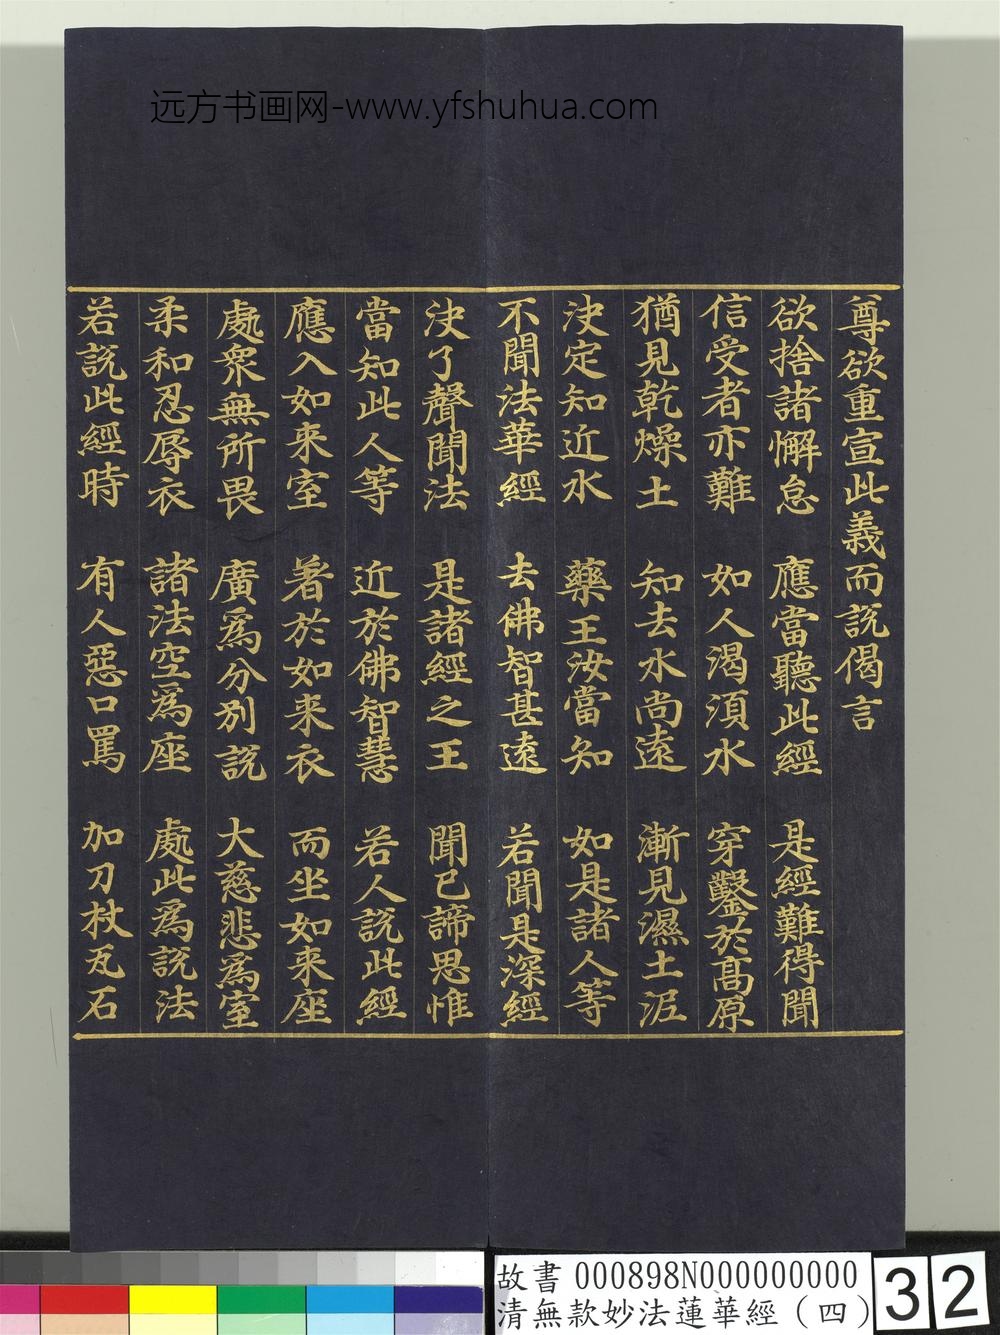 远方书画网-www.yfshuhua.com
尊欲重宣此義而說偈言
欲捨諸懈怠　應當聽此經　是經難得聞
信受者亦難　如人渴須水　穿鑿於髙原
猶見乾燥土　知去水尚遠　漸見濕土泥
決定知近水　藥王汝當知　如是諸人等
不聞法華經　去佛智甚遠　若聞是深經
決了聲聞法　是諸經之王　聞已諦思惟
當知此人等　近於佛智慧　若人說此經
應入如来室　著於如来衣　而坐如来座
處眾無所畏　廣爲分別說　大慈悲爲室
柔和忍辱衣　諸法空爲座　處此爲說法
若說此經時　有人惡口罵　加刀杖瓦石
故書 000898N000000000
清無款妙法蓮華經（四）
32